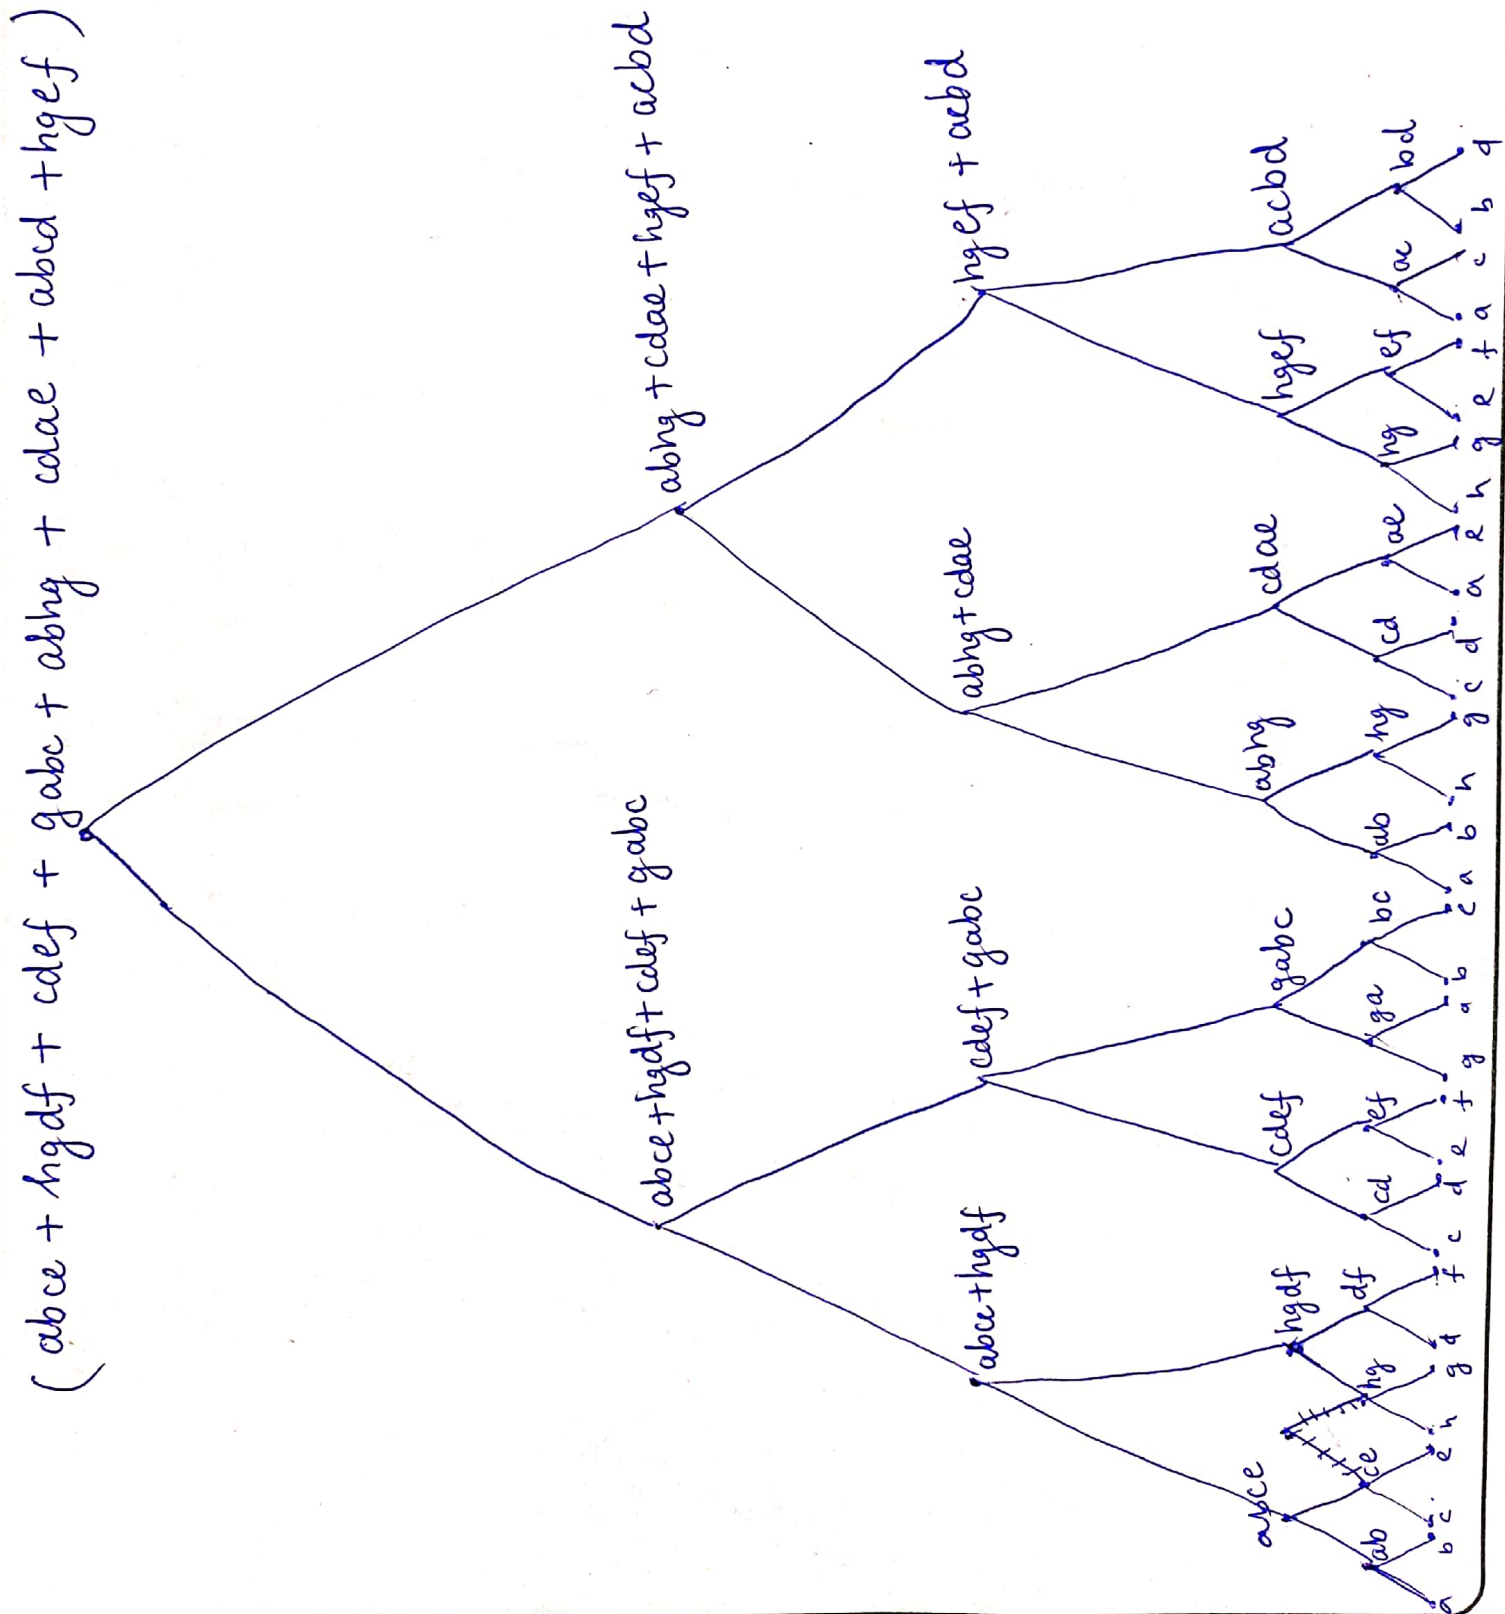 (abce + hgdf + cdef + gabc + abhg + cdae + abcd + hgef)
abce+hgdf+cdef+gabc abhg+cdae+hgef+acbd
abce+hgdf cdef+gabc abhg+cdae hgef + acbd
abce hgdf cdef gabc abhg cdae hgef acbd
ab ce hg df cd ef ga bc ab hg cd ae hg ef ac bd
a b c e h g d f c d e f g a b c a b h g c d a e h g e f a c b d